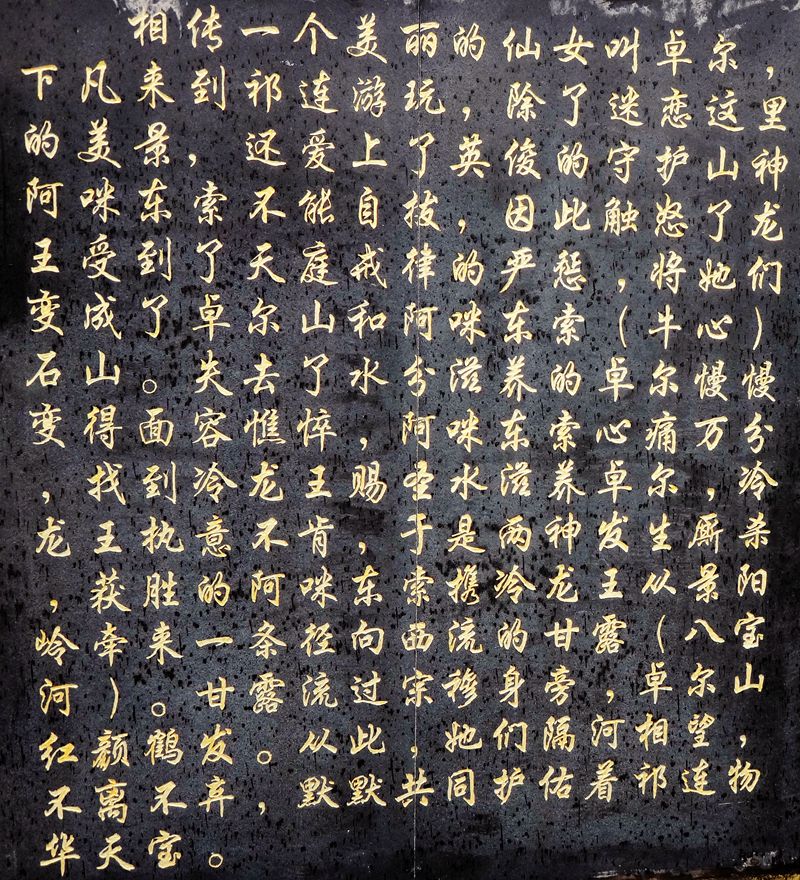 相传一个美丽的仙女叫卓尔，
下凡来到祁连游玩，除了迷恋这里
的美景，还爱上了英俊的守护山神
阿咪东索不能自拔，因此触怒了龙
王受到了天庭戒律的严惩，将她们
变成了卓尔山和阿咪东索（牛心）
石山。失去了水兮滋养的卓尔慢慢
变得面容憔悴，阿咪东索心痛万兮
，找到冷龙王赐圣水滋养卓尔，冷
龙王执意不肯，于是两神发生厮杀
，获胜的阿咪东索携冷龙王从景阳
岭牵来一条径向西流的甘露（八宝
河）。甘露流过宗穆身旁，卓尔山
红颜鹤发。从此，她们隔河相望，
不离不弃，默默共同护佑着祁连物
华天宝。